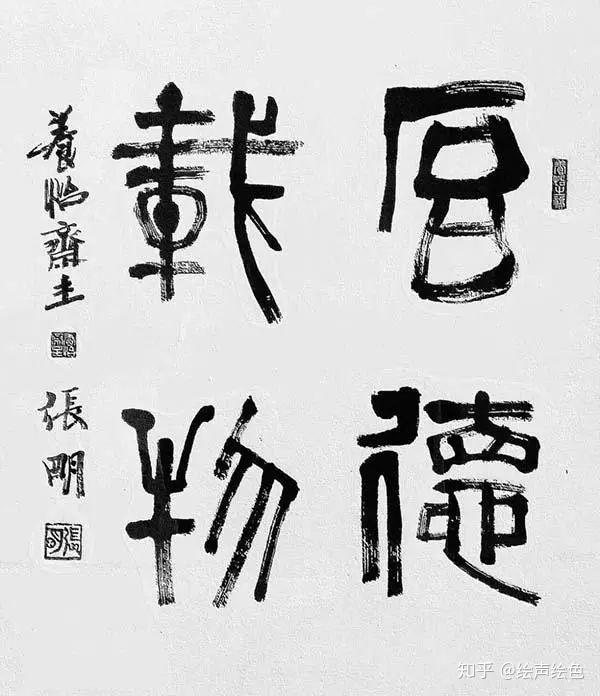 厚德
載物
養怡齋主
張明
知乎 @绘声绘色